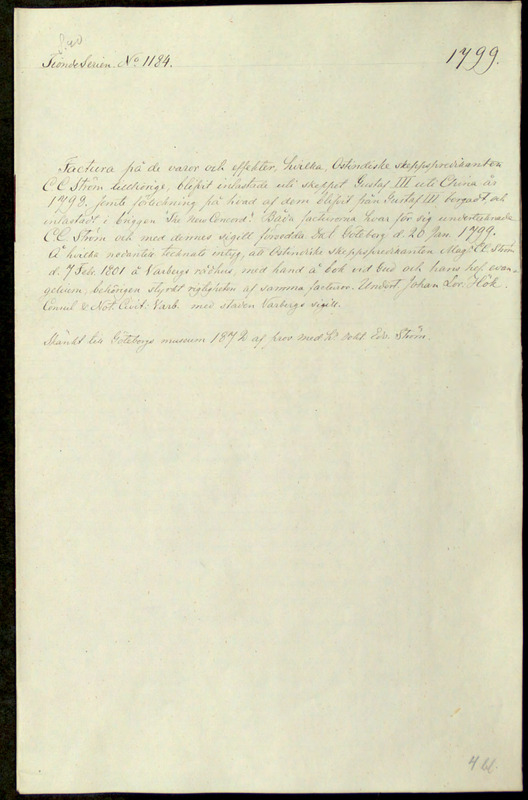 Tionde Serien. No 1184.
1799.
Factura på de varor och effekter, hvilka, Ostindiske skeppspredikanten
C C Ström tillhörige, blifvit inlastade uti skeppet Gustaf III uti China år
1799. Jemte förteckning på hvad af dem blifvit från Gustaf III bergadt och
inlastadt i briggen The New Concord. Båda facturorna hvar för sig undertecknade
C. C. Ström och med dennes sigill försedda. Dat. Göteborg d. 26 Jan. 1799.
Å hvilka nedantill tecknats intyg, att Ostindiske skeppspredikanten Mag. C C Ström
d. 7 Feb. 1801 å Varbergs rådhus, med hand å bok vid Gud och hans
, behörigen styrkt rigtigheten af samma facturor. Undert. Johan Lor. Hök.
Consul & Not. Civit. Varb. med staden Varbergs sigill.
Skänkt till Göteborgs museum 1872 af prov. med. Edv. Ström.
4 bl.